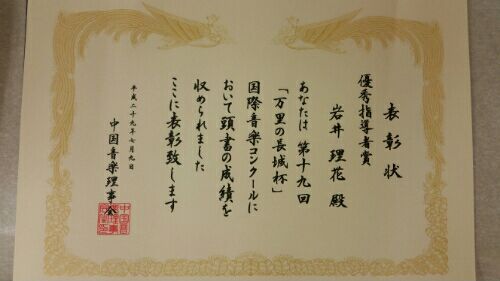 表彰状
優秀指導者賞
岩井 理花 殿
あなたは 第十九回
「万里の長城杯」
国際音楽コンクールに
おいて頭書の成績を
収められました
ここに表彰致します
平成二十九年七月九日
中国音楽理事会